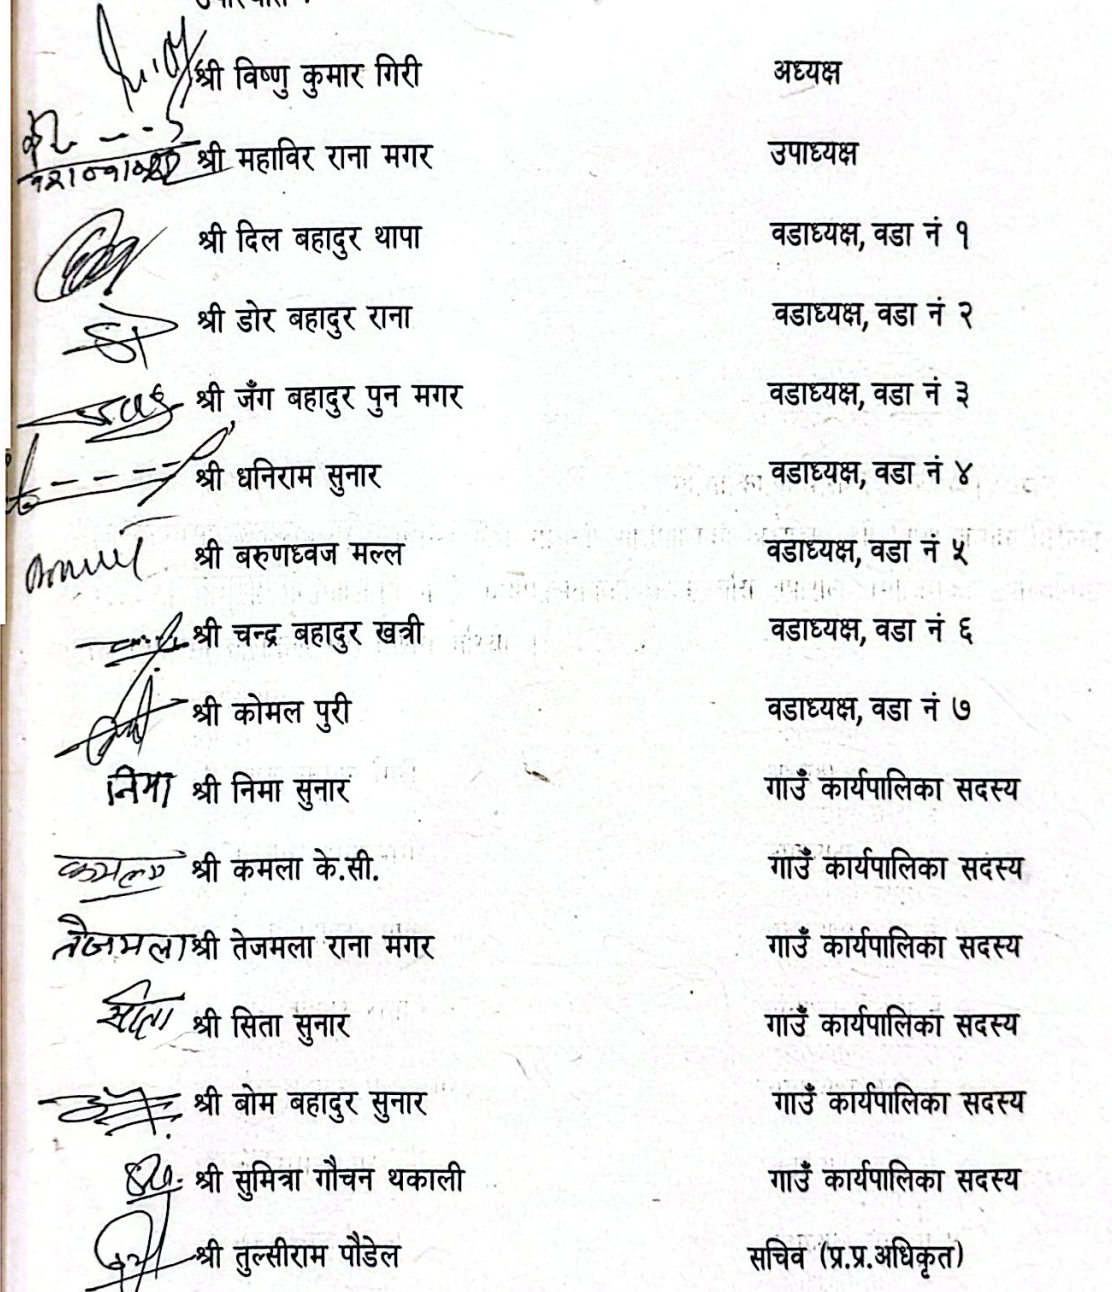 श्री विष्णु कुमार गिरी अध्यक्ष
श्री महाविर राना मगर उपाध्यक्ष
श्री दिल बहादुर थापा वडाध्यक्ष, वडा नं १
श्री डोर बहादुर राना वडाध्यक्ष, वडा नं २
श्री जँग बहादुर पुन मगर वडाध्यक्ष, वडा नं ३
श्री धनिराम सुनार वडाध्यक्ष, वडा नं ४
श्री बरुणध्वज मल्ल वडाध्यक्ष, वडा नं ५
श्री चन्द्र बहादुर खत्री वडाध्यक्ष, वडा नं ६
श्री कोमल पुरी वडाध्यक्ष, वडा नं ७
निमा श्री निमा सुनार गाउँ कार्यपालिका सदस्य
कमला श्री कमला के.सी. गाउँ कार्यपालिका सदस्य
तेजमला श्री तेजमला राना मगर गाउँ कार्यपालिका सदस्य
सीता श्री सिता सुनार गाउँ कार्यपालिका सदस्य
श्री बोम बहादुर सुनार गाउँ कार्यपालिका सदस्य
श्री सुमित्रा गौचन थकाली गाउँ कार्यपालिका सदस्य
श्री तुल्सीराम पौडेल सचिव (प्र.प्र.अधिकृत)